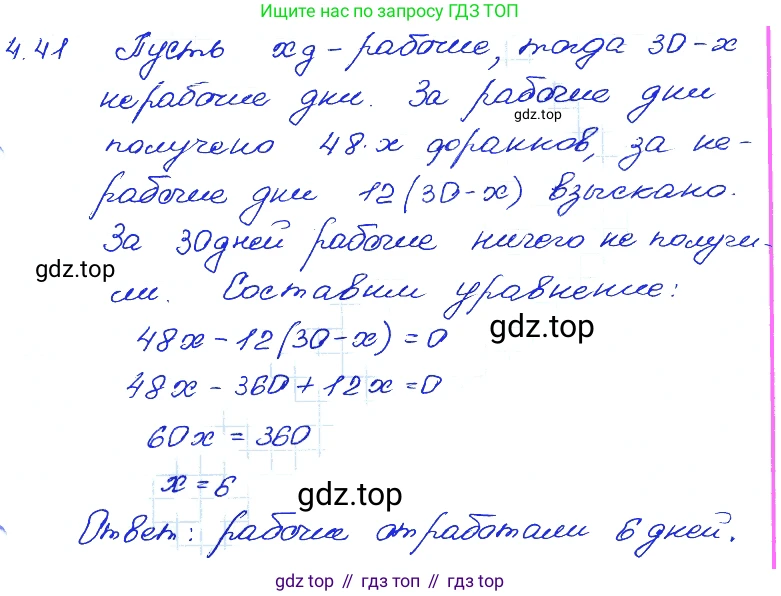 Ищите нас по запросу ГДЗ ТОП
4.41 Пусть x д - рабочие, тогда 30-x
нерабочие дни. За рабочие дни
gdz.top
получено 48·x форанков, за не-
рабочие дни 12(30-x) взыскано.
За 30 дней рабочие ничего не получи-
gdz.top
ли. Составим уравнение:
48x-12(30-x)=0
gdz.top
48x-360+12x=0
60x=360
x=6
gdz.top
Ответ: рабочие отработали 6 дней.
gdz top // гдз топ // gdz top